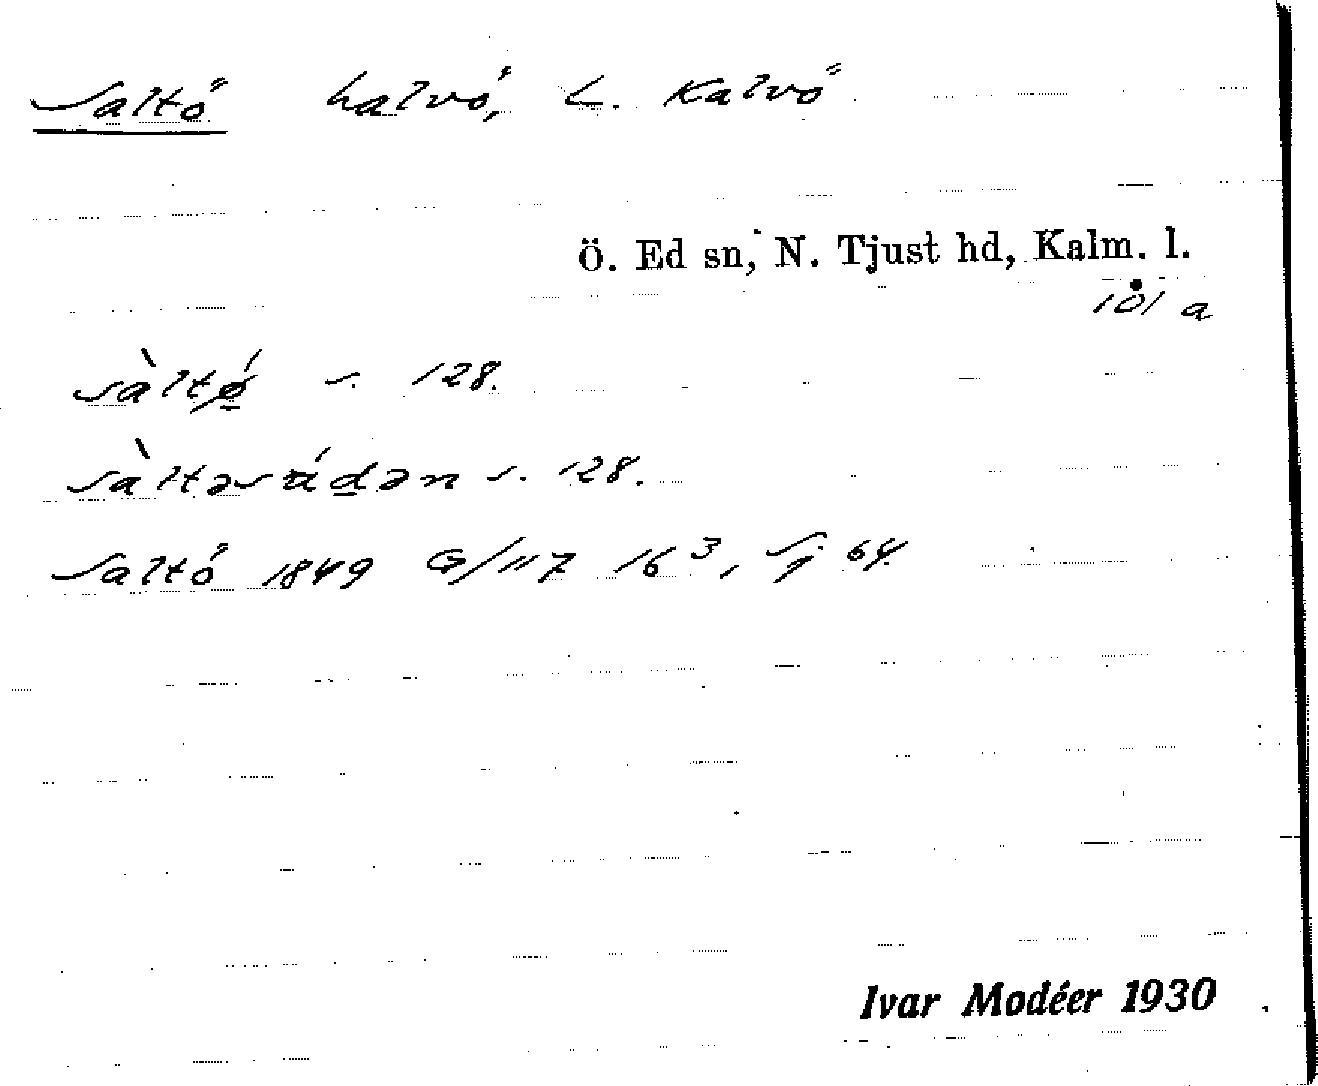 Saltö halvö, L. Kalvö
Ö. Ed sn, N. Tjust hd, Kalm. l.
101 a
sàltǿ s. 128.
sàltəsádən s. 128.
Saltö 1849 G/117 16³, Sj 64.
Ivar Modéer 1930